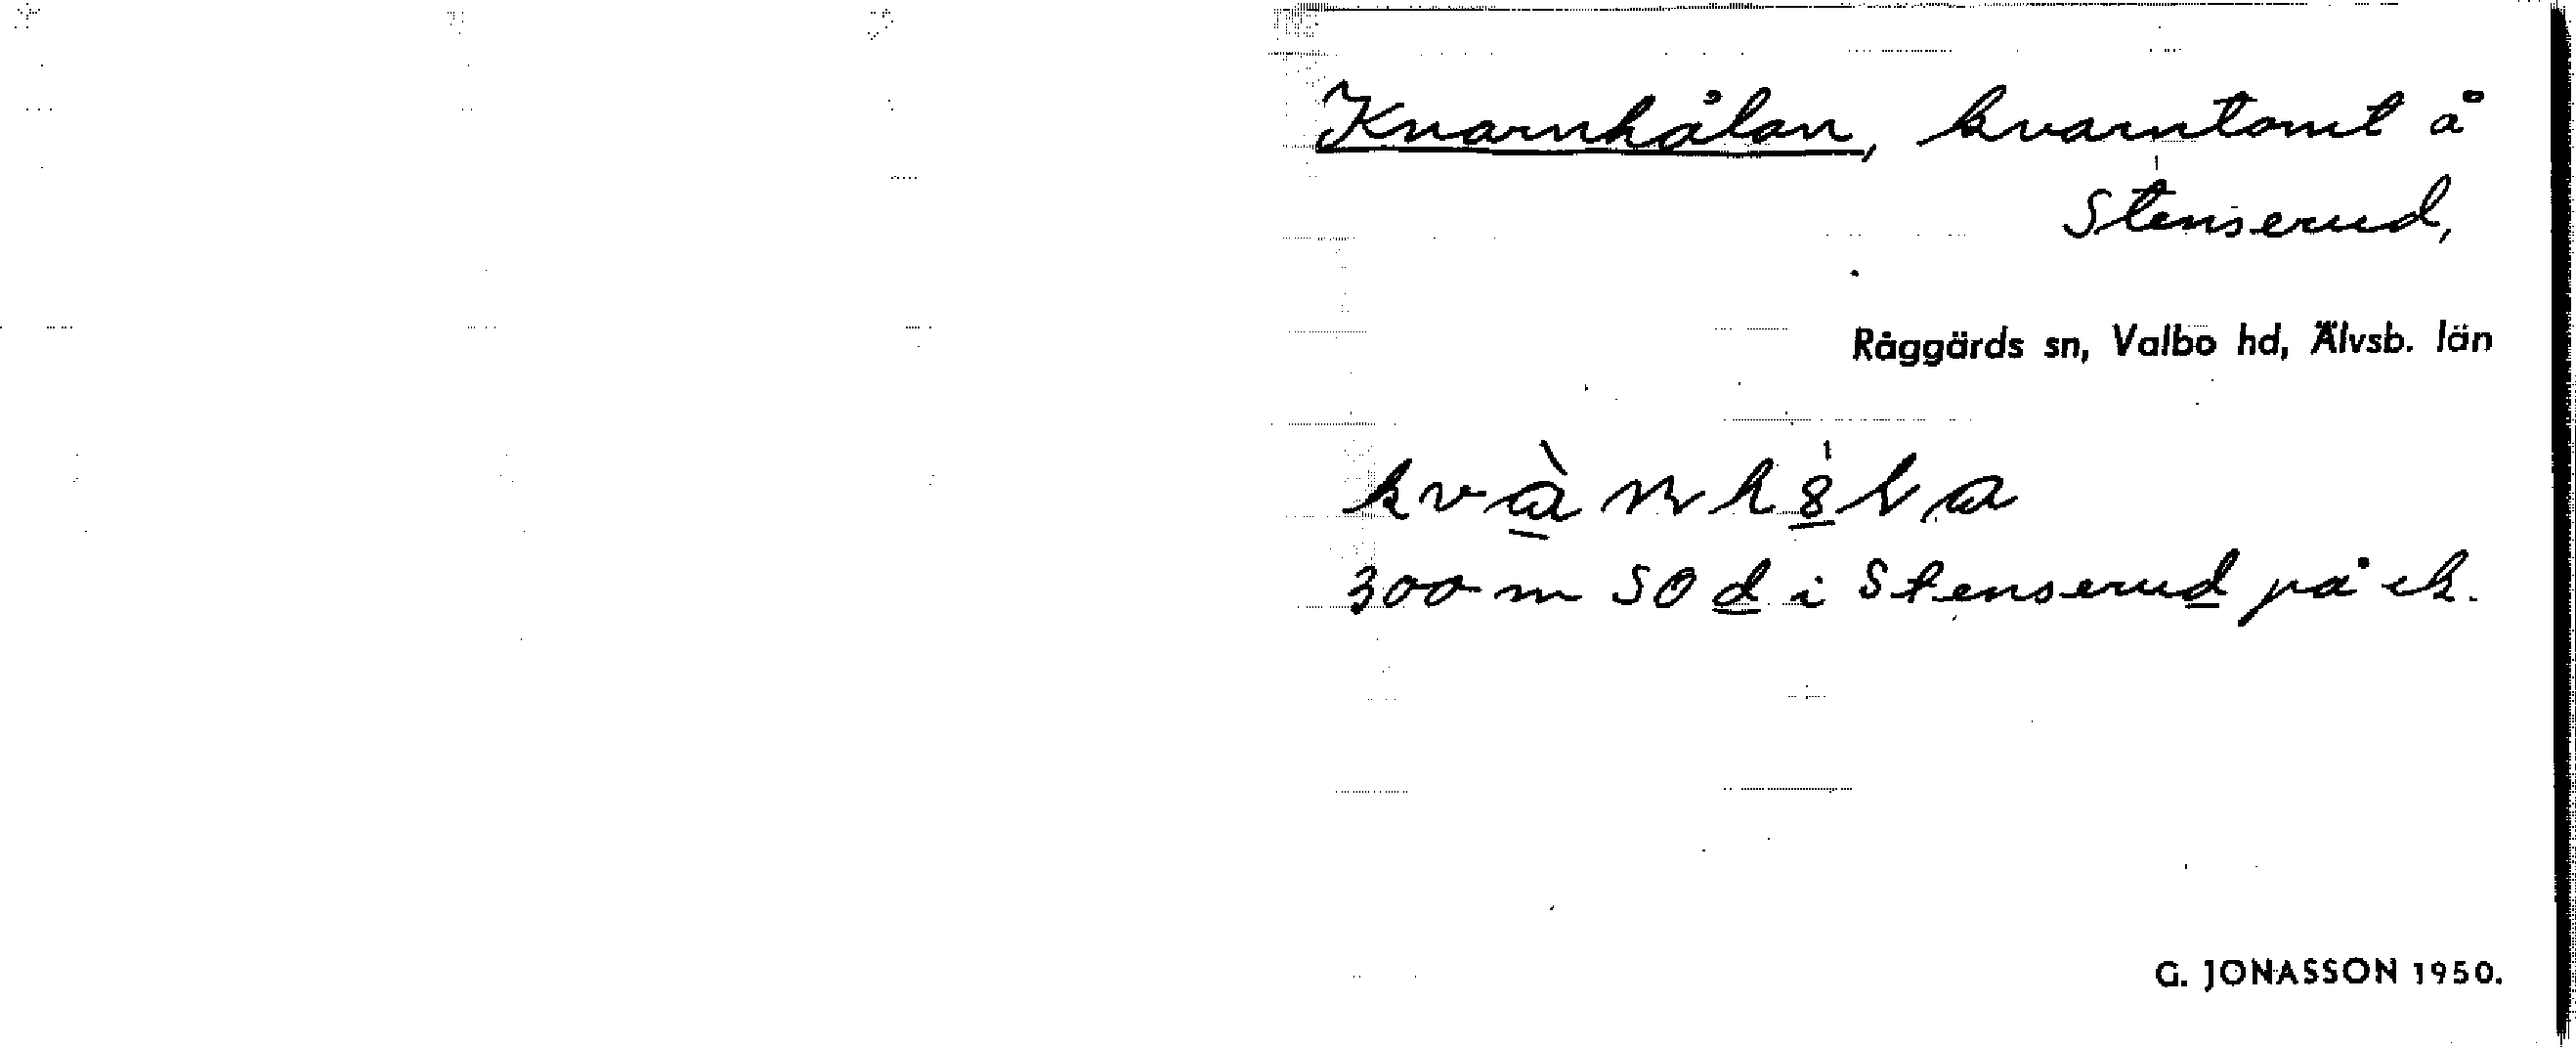 Kvarnhålan, kvarntomt å
Stenserud,
Råggärds sn, Valbo hd, Älvsb. län
300 m SO d i Stenserud på ek.
G. JONASSON 1950.